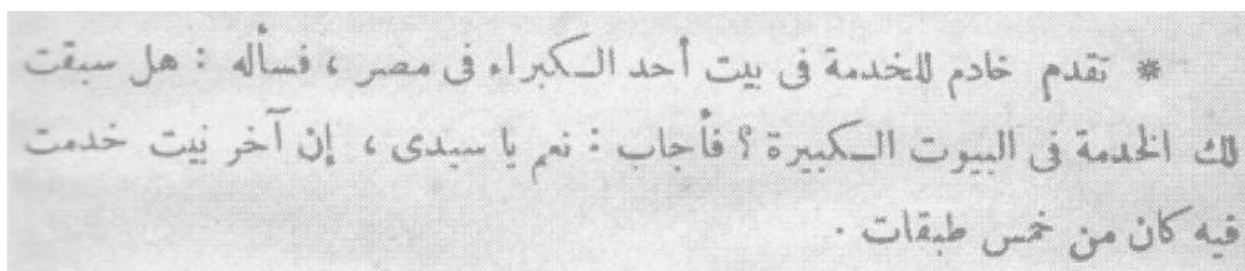 * تقدم خادم للخدمة فى بيت أحد الكبراء فى مصر ، فسأله : هل سبقت
لك الخدمة فى البيوت الكبيرة ؟ فأجاب : نعم يا سيدى ، إن آخر بيت خدمت
فيه كان من خمس طبقات .